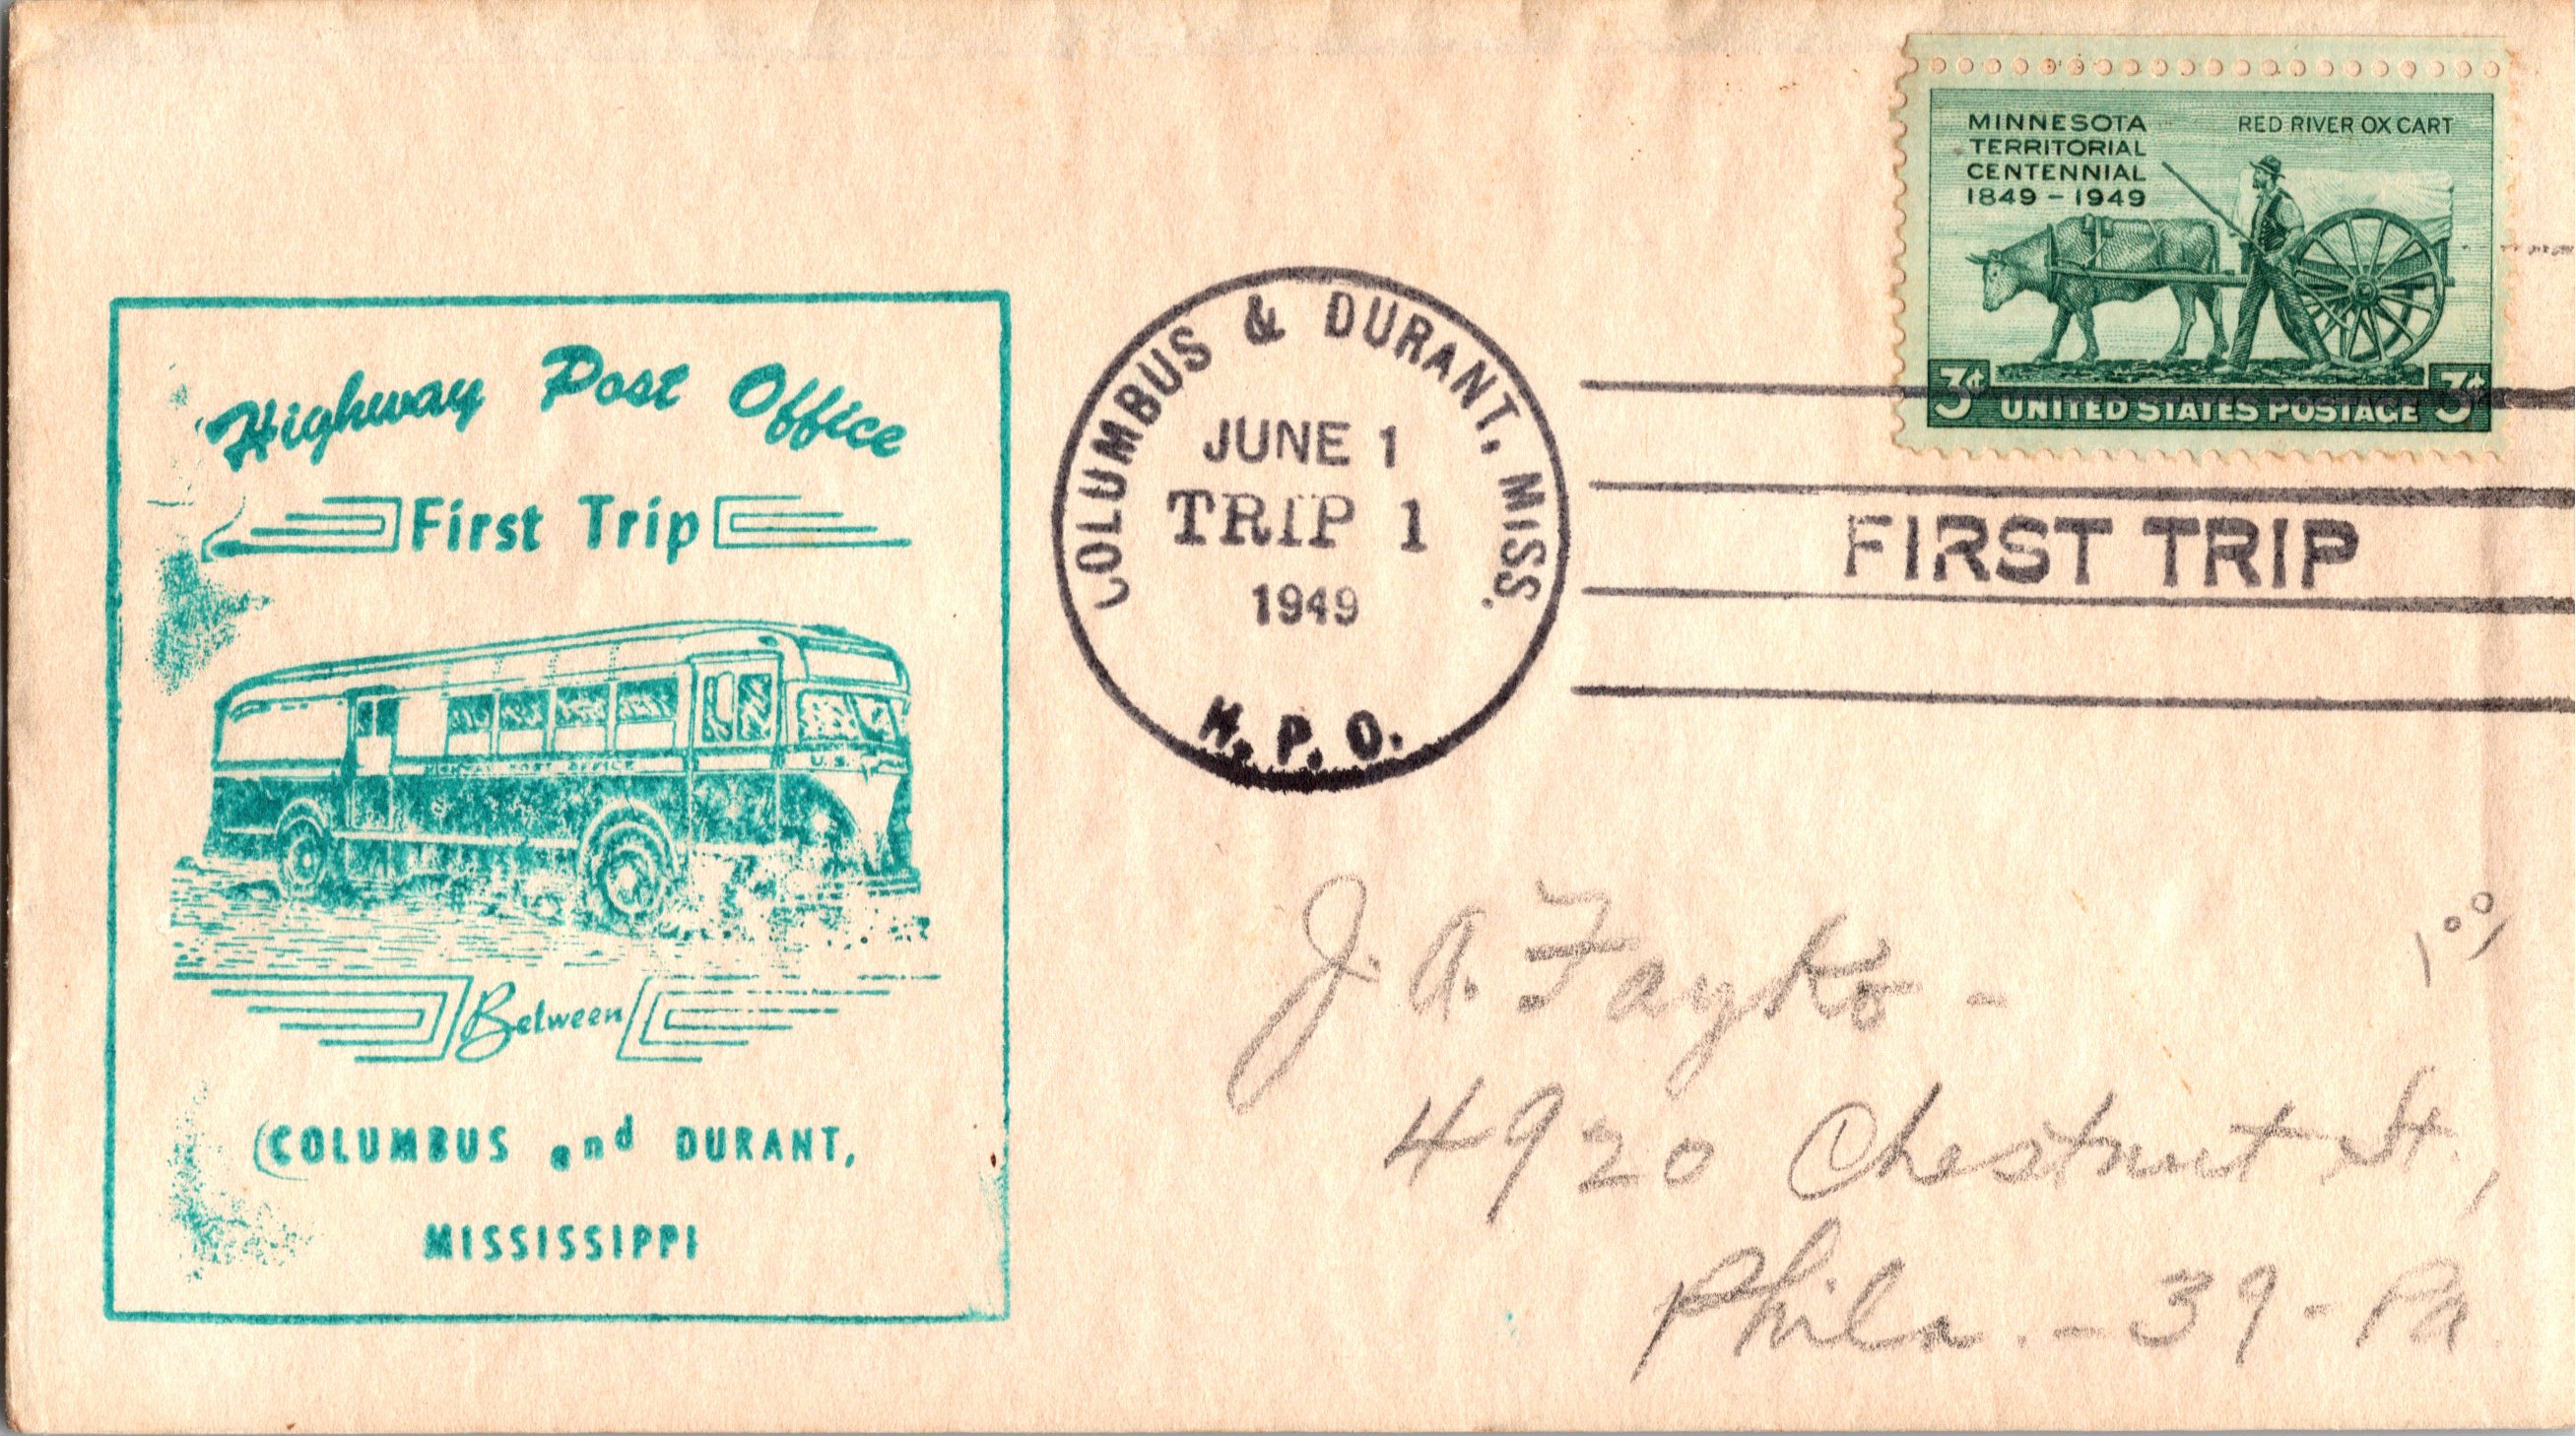 Highway Post Office
First Trip
HIGHWAY POST OFFICE
U.S.
Between
COLUMBUS and DURANT,
MISSISSIPPI
COLUMBUS & DURANT, MISS.
JUNE 1
TRIP 1
1949
H.P.O.
MINNESOTA
TERRITORIAL
CENTENNIAL
1849 - 1949
RED RIVER OX CART
3¢ UNITED STATES POSTAGE 3¢
FIRST TRIP
J. A. Fayko -
4920 Chestnut St.,
Phila. - 39 - Pa.
1⁰⁰